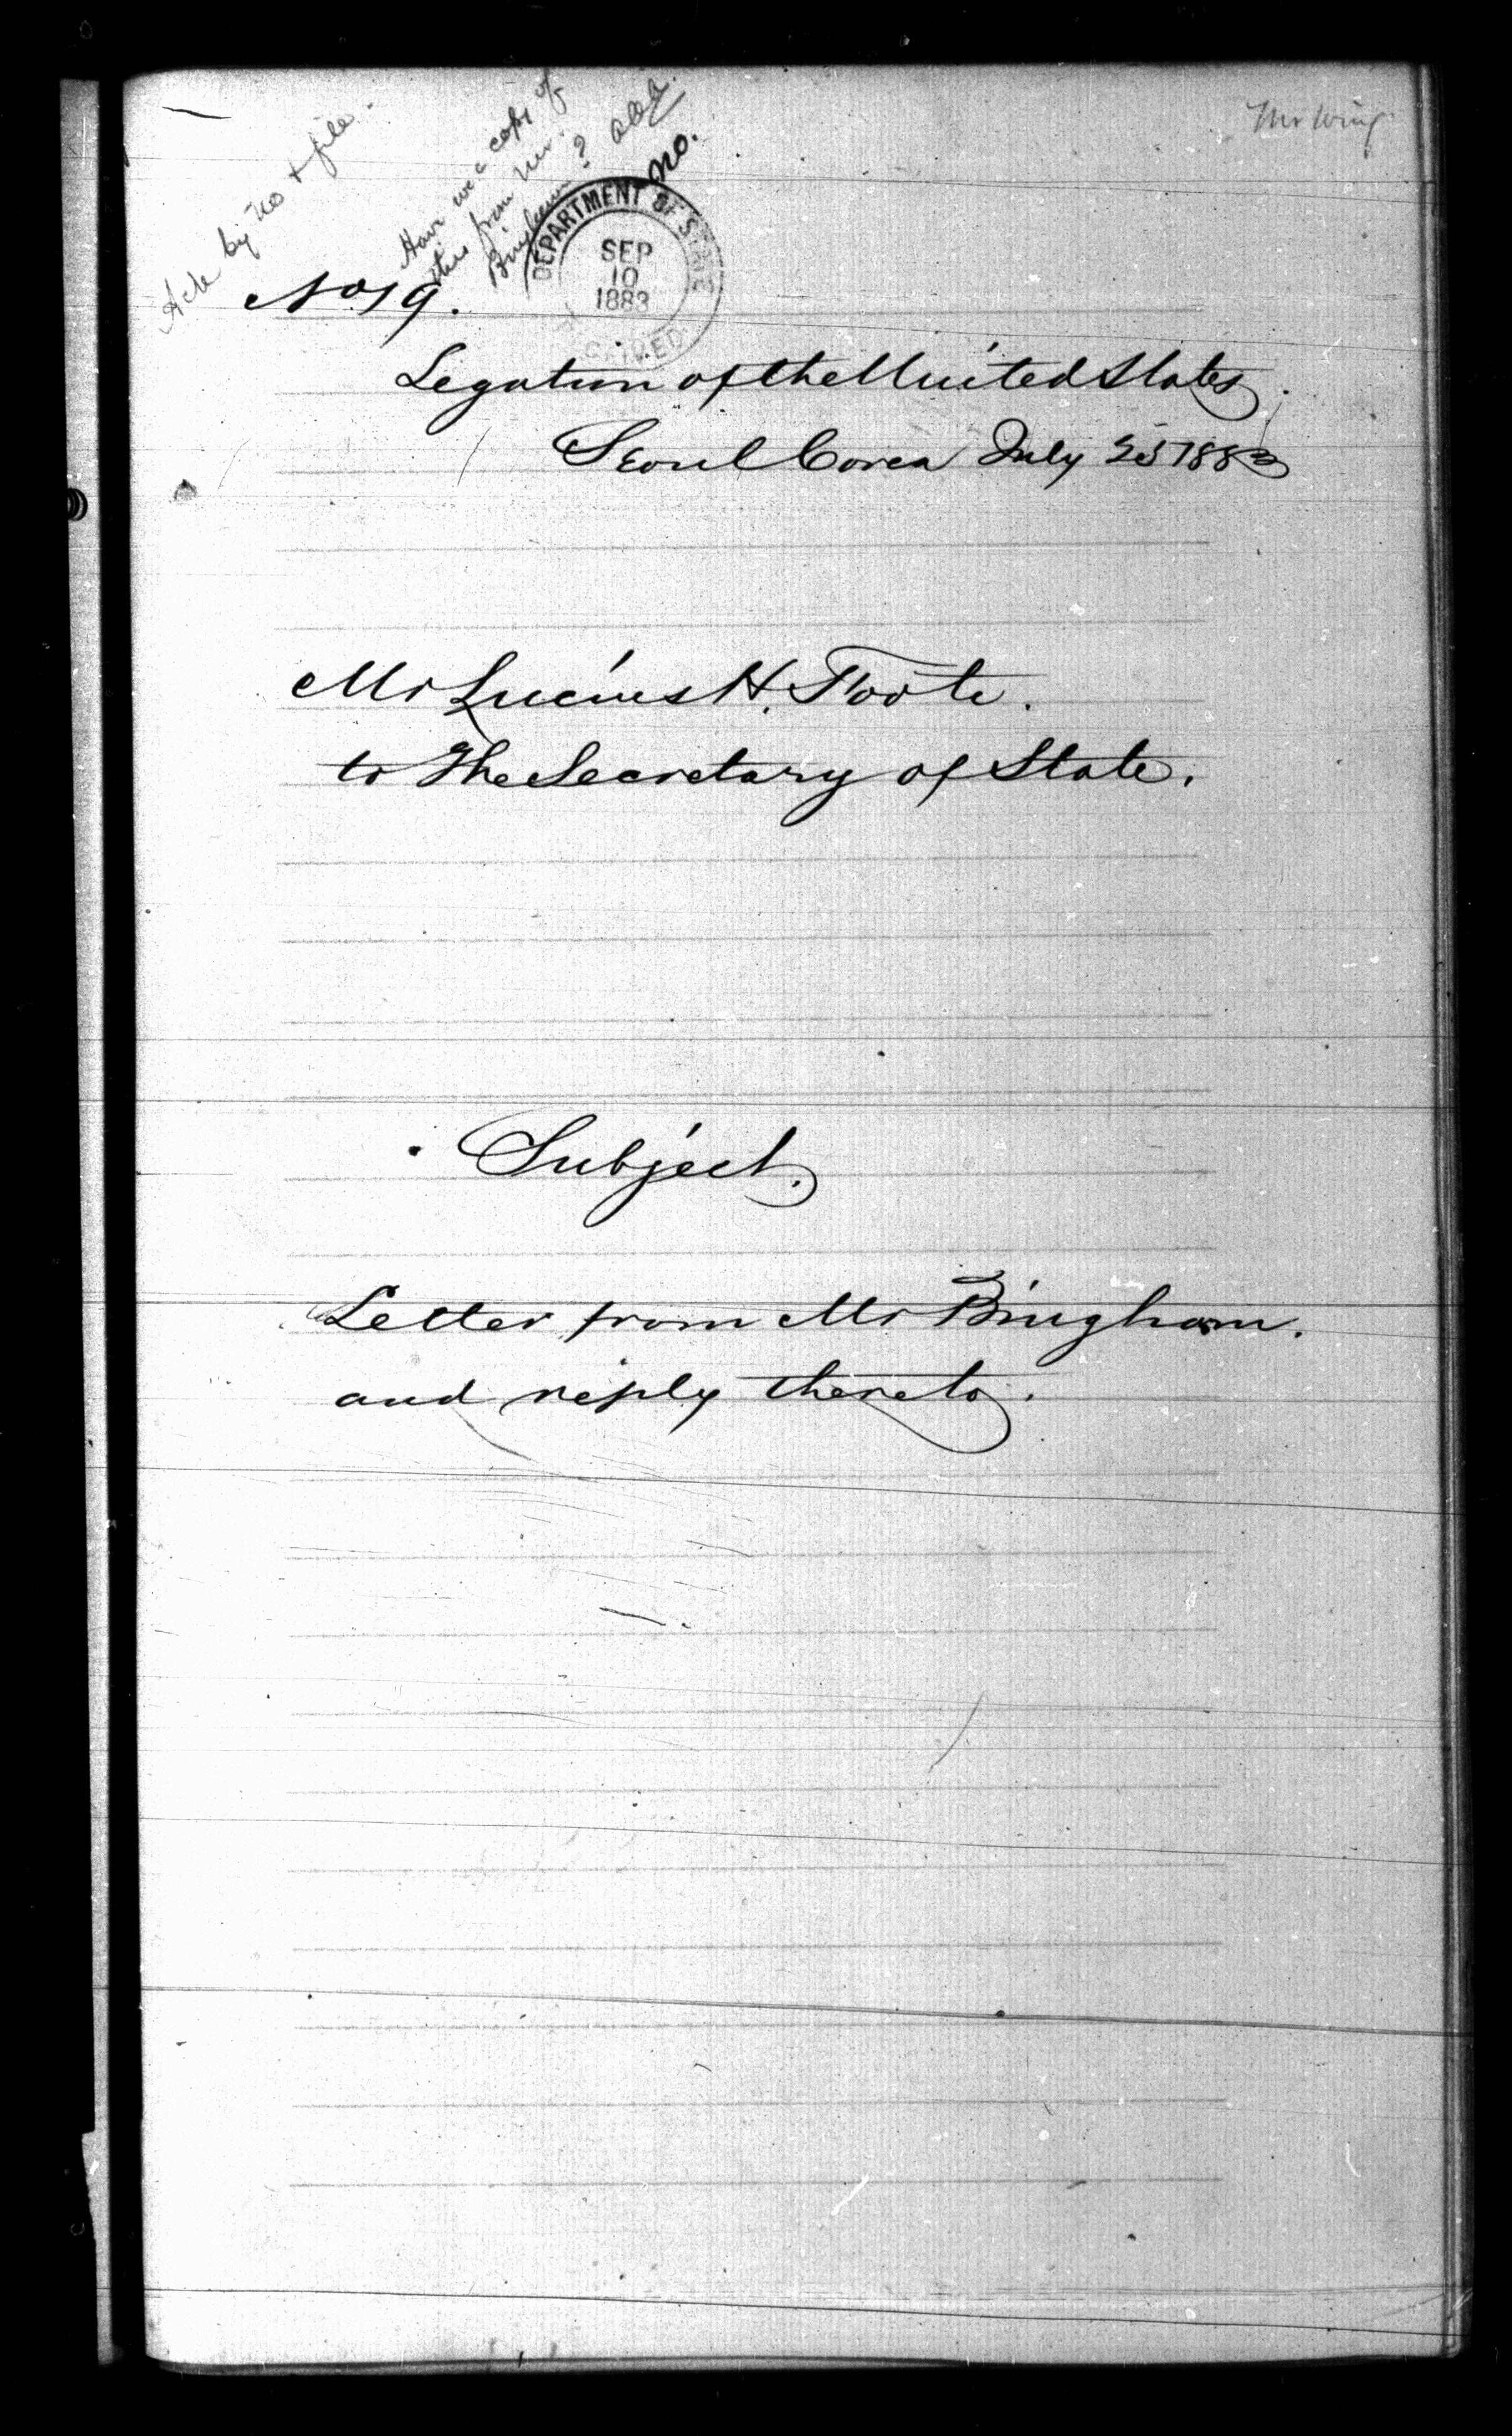 Mr Wing
Ack by No + file.
Have we a copy of
this from Mr.
Bingham? AAA
No.
DEPARTMENT OF STATE
SEP
10
1883
RECEIVED
No 19.
Legation of the United States.
Seoul Corea July 1883
Mr Lucius H. Foote.
to The Secretary of State.
Subject.
Letter from Mr Bingham.
and reply thereto.